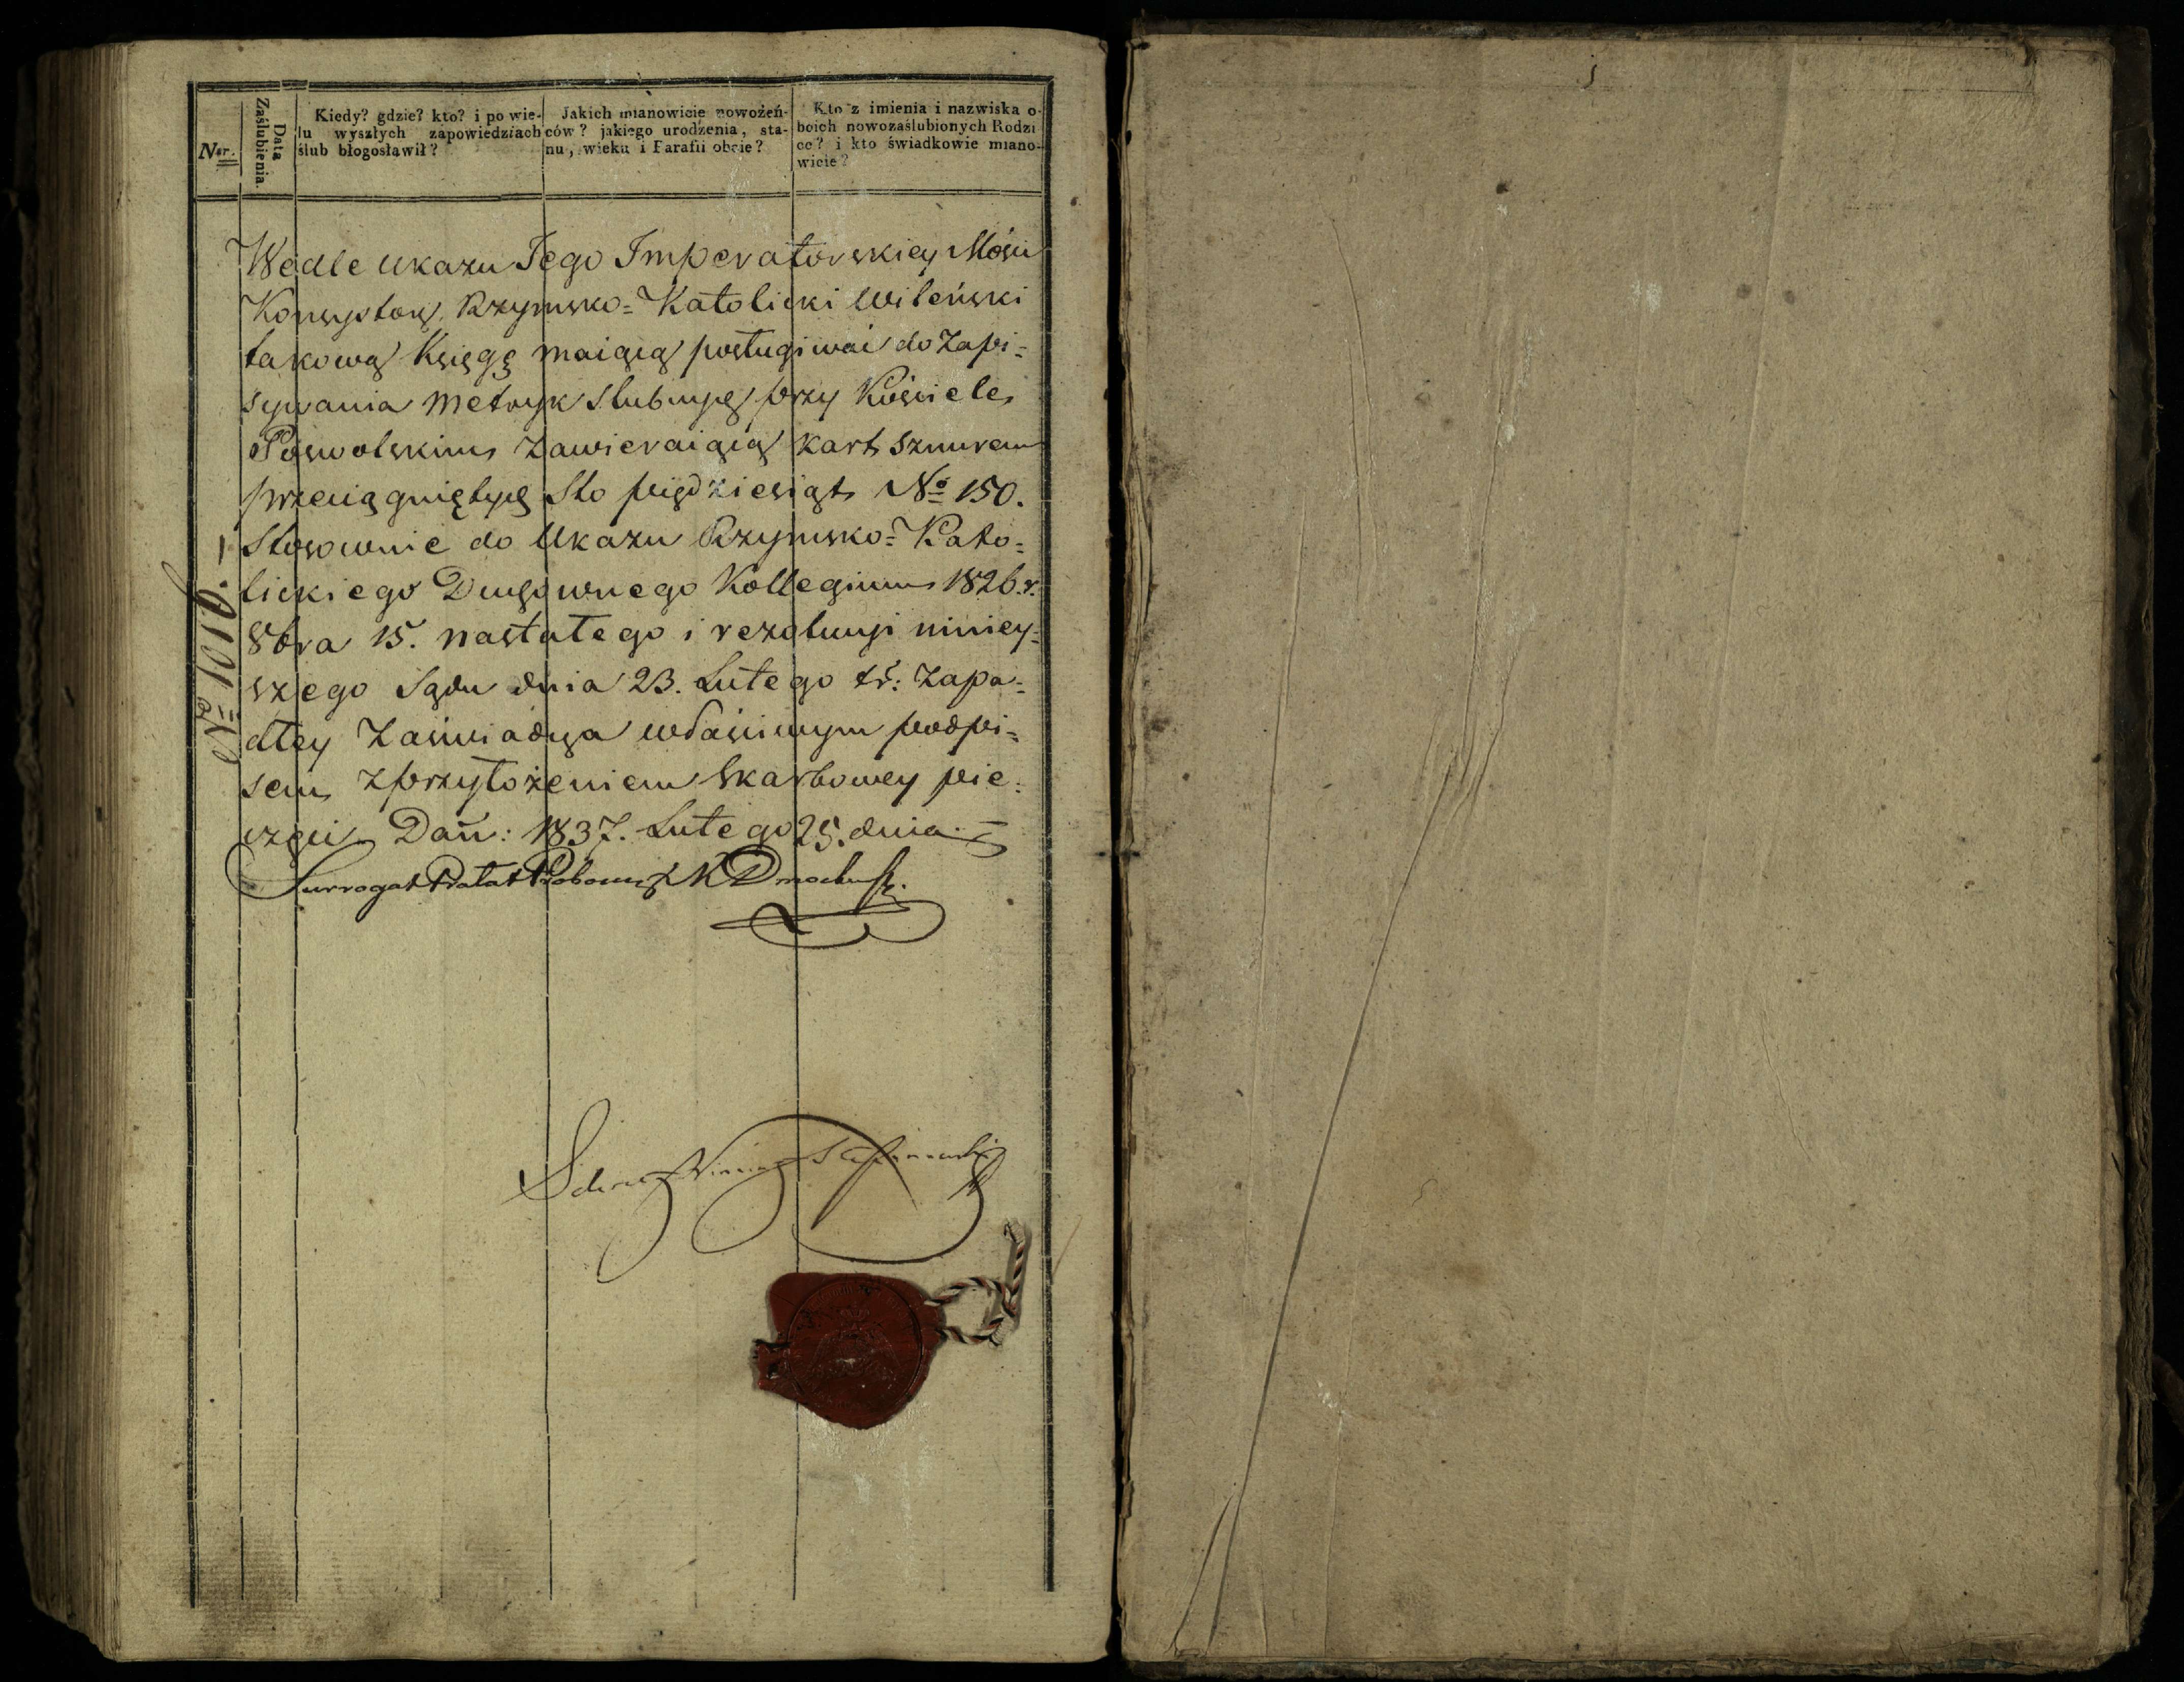 Ner.
Data
Zaślubienia.
Kiedy? gdzie? kto? i po wie-
lu wyszłych zapowiedziach
ślub błogosławił?
Jakich mianowicie nowożeń-
ców? jakiego urodzenia, sta-
nu, wieku i Parafii oboie?
Kto z imienia i nazwiska o-
boich nowozaślubionych Rodzi
ce? i kto świadkowie miano-
wicie?
Wedle Ukazu Jego Imperatorskiey Mości
Konsystorz Rzymsko=Katolicki Wileński
takową Księgę maiącą posługiwać do Zapi=
sywania Metryk Slubnych przy Kościele
Poswolskim Zawieraiącą kart sznurem
przeciągniętych Sto pięćdziesiąt No 150.
Stosownie do Ukazu Rzymsko=Kato=
lickiego Duchownego Kollegium 1826 r.
8bra 15. nastałego i rezolucyi niniey=
szego Sądu dnia 23. Lutego tr: Zapa=
dłey Zaświadcza właściwym podpi=
sem z przyłożeniem Skarbowey pie=
częci Dań: 1837. Lutego 25. dnia.
Surrogat Prałat Proboszcz K Dmochowski
No 1010.